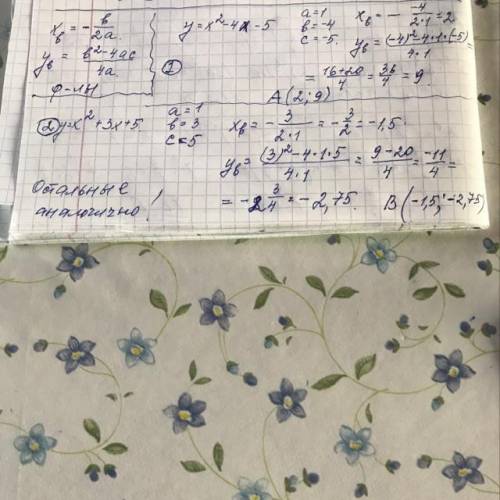 x_в = - в/2a.
y_в = в²-4ac/4a.
ф-лы
① y = x²-4x-5
a=1
в=-4
c=-5.
x_в = - -4/2·1 = 2
y_в = (-4)²-4·1·(-5)/4·1 =
= 16+20/4 = 36/4 = 9.
A(2; 9)
② y=x²+3x+5
a=1
в=3
c=5
x_в = - 3/2·1 = - 3/2 = -1,5.
y_в = (3)²-4·1·5/4·1 = 9-20/4 = -11/4 =
= -2 3/4 = -2,75.
B(-1,5; -2,75)
Остальные
аналогично!